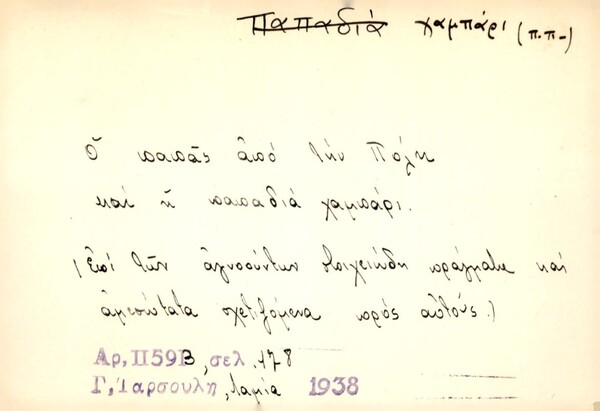 Παπαδιά χαμπάρι (π.π-)
Ὁ παπᾶς ἀπό τήν Πόλη
καί ἡ παπαδιά χαμπάρι.
(Ἐπί τῶν ἀγνοούντων στοιχειώδη πράγματα καί
ἀμεσώτατα σχετιζόμενα πρός αὐτούς.)
Αρ, ΙΙ59Β, σελ. 178
Γ, Ταρσούλη, Λαμία 1938